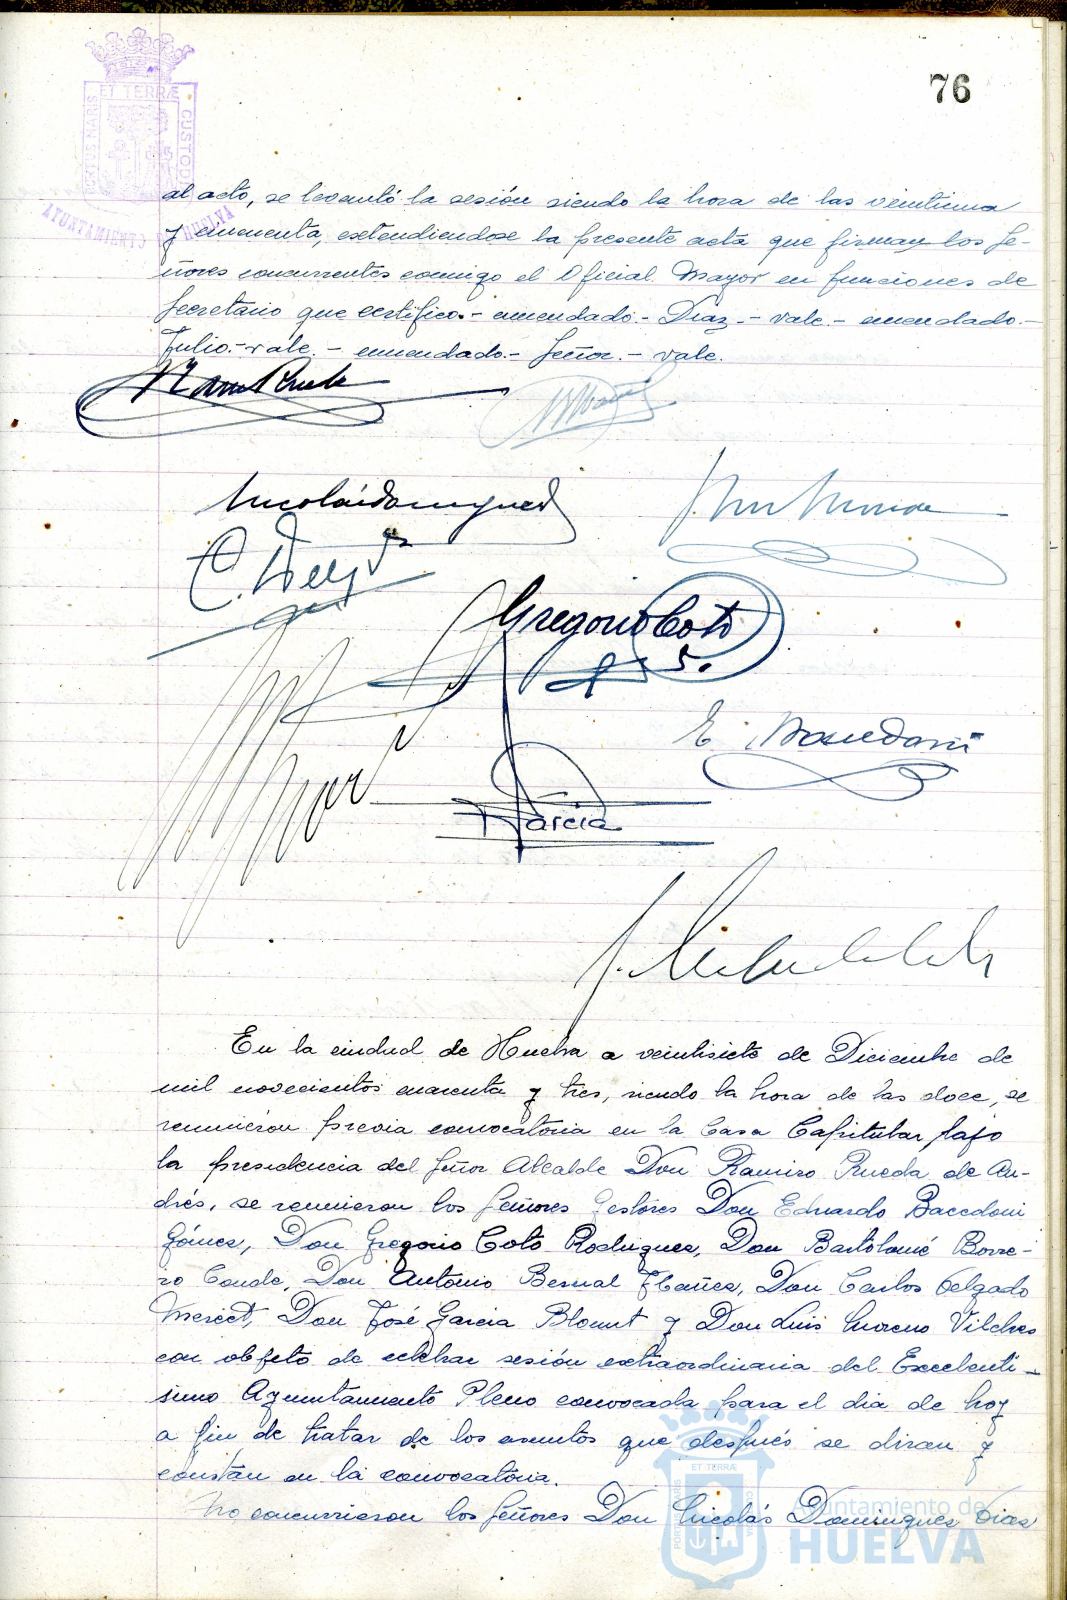 76
ET TERRÆ
PORTUS MARIS
CUSTODIA
AYUNTAMIENTO HUELVA
al acto, se levantó la sesión siendo la hora de las veintiuna
y cincuenta, extendiendose la presente acta que firman los Se-
ñores concurrentes conmigo el Oficial Mayor en funciones de
Secretario que certifico.- enmendado.- Diaz.- vale.- enmendado.-
Julio.- vale.- enmendado.- Señor.- vale.
Gregorio Coto
E. Bacedoni
Garcia
En la ciudad de Huelva a veintisiete de Diciembre de
mil novecientos cuarenta y tres, siendo la hora de las doce, se
reunieron previa convocatoria en la Casa Capitular, bajo
la presidencia del Señor Alcalde Don Ramiro Rueda de An-
drés, se reunieron los Señores Gestores Don Eduardo Bacedoni
Gómez, Don Gregorio Coto Rodriguez, Don Bartolomé Borre-
ro Conde, Don Antonio Bernal Ibañez, Don Carlos Delgado
Don José Garcia Blount y Don Luis Moreno Vilches
con objeto de celebrar sesión extraordinaria del Excelenti-
simo Ayuntamiento Pleno convocada para el dia de hoy
a fin de tratar de los asuntos que después se diran y
constan en la convocatoria.
No concurrieron los Señores Don Nicolás Dominguez Diaz
ET TERRÆ
PORTUS MARIS
Ayuntamiento de
HUELVA